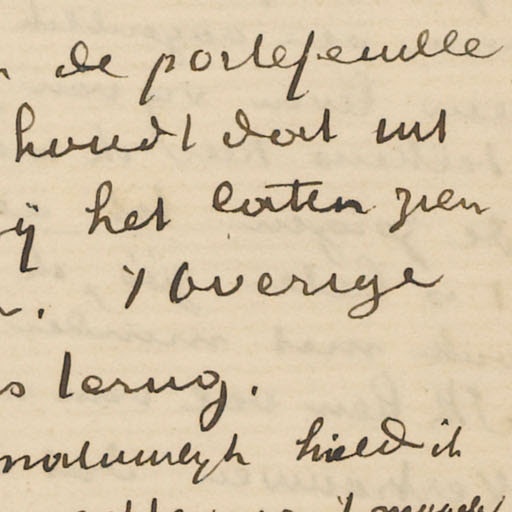 de portefeuille
houdt dat uit
ij het laten zien
't overige
s terug.
natuurlijk hield ik